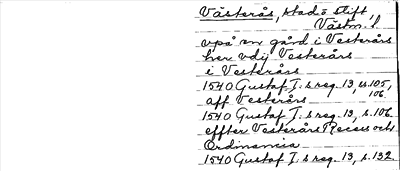 Västerås, stad o stift,
Västm. l.
vpå en gård i Vesterårs
her vdij Vesterårs
i Vesterårs
1540 Gustaf I. s reg. 13, s. 105,
106.
aff Vesterårs
1540 Gustaf I. s reg. 13, s. 106
effter Vesterårs Recess och
Ordinancia
1540 Gustaf I. s reg. 13, s. 132.